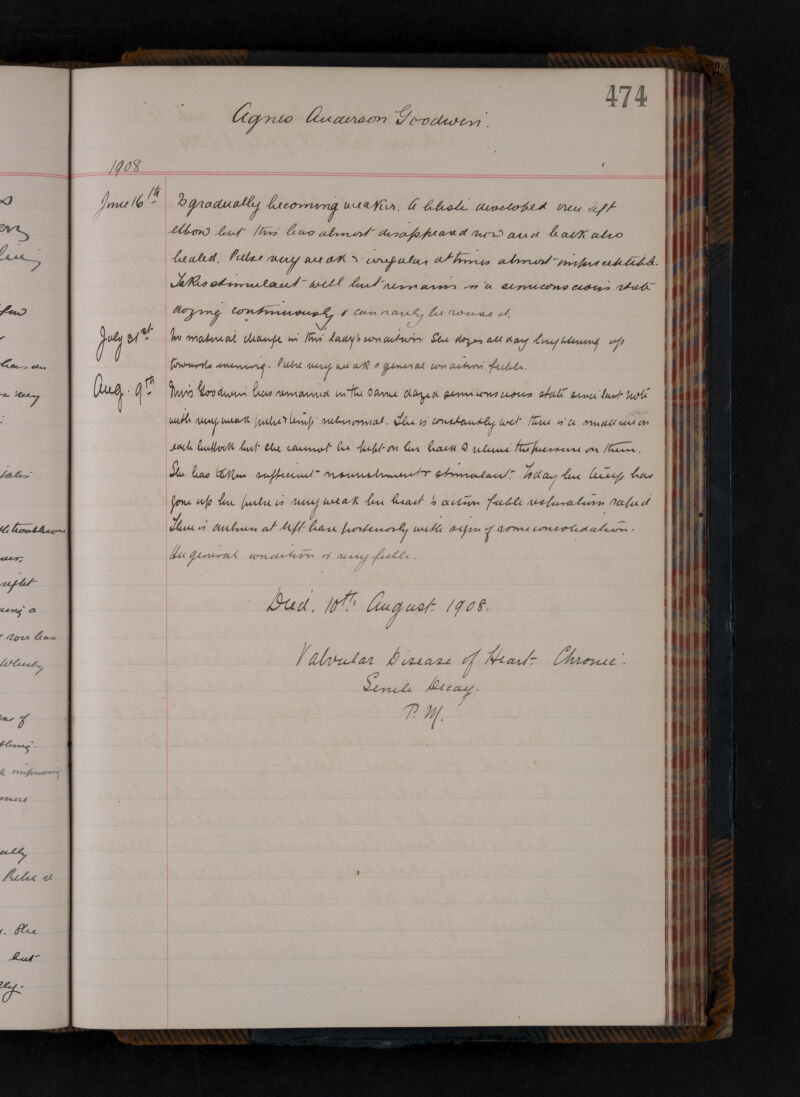 474
Agnes Anderson Goodwin.
1908
June 16th Is gradually becoming weaker. A blister developed over left
elbow but this has almost disappeared now and back also
healed. Pulse very weak & irregular at times almost imperceptible.
Takes stimulant well but remains in a semiconscious state
dozing continuously & can rarely be roused.
July 31st No material change in this lady's condition She dozes all day brightening up
towards evening. Pulse very weak & general condition feeble.
Aug. 9th Miss Goodwin has remained in the same dazed semiconscious state since last note
with very weak pulse & temp subnormal. She is constantly wet there is a small on
each buttock but she cannot be kept on her back to relieve the pressure on them.
She has taken sufficient nourishment & stimulant. Today her temp has
gone up her pulse is very weak her heart's action feeble respirations rapid
There is dulness at left base posteriorly with signs of some consolidation.
Her general condition is very feeble.
Died. 10th August 1908.
Valvular Disease of Heart - Chronic.
Senile Decay.
P. M.